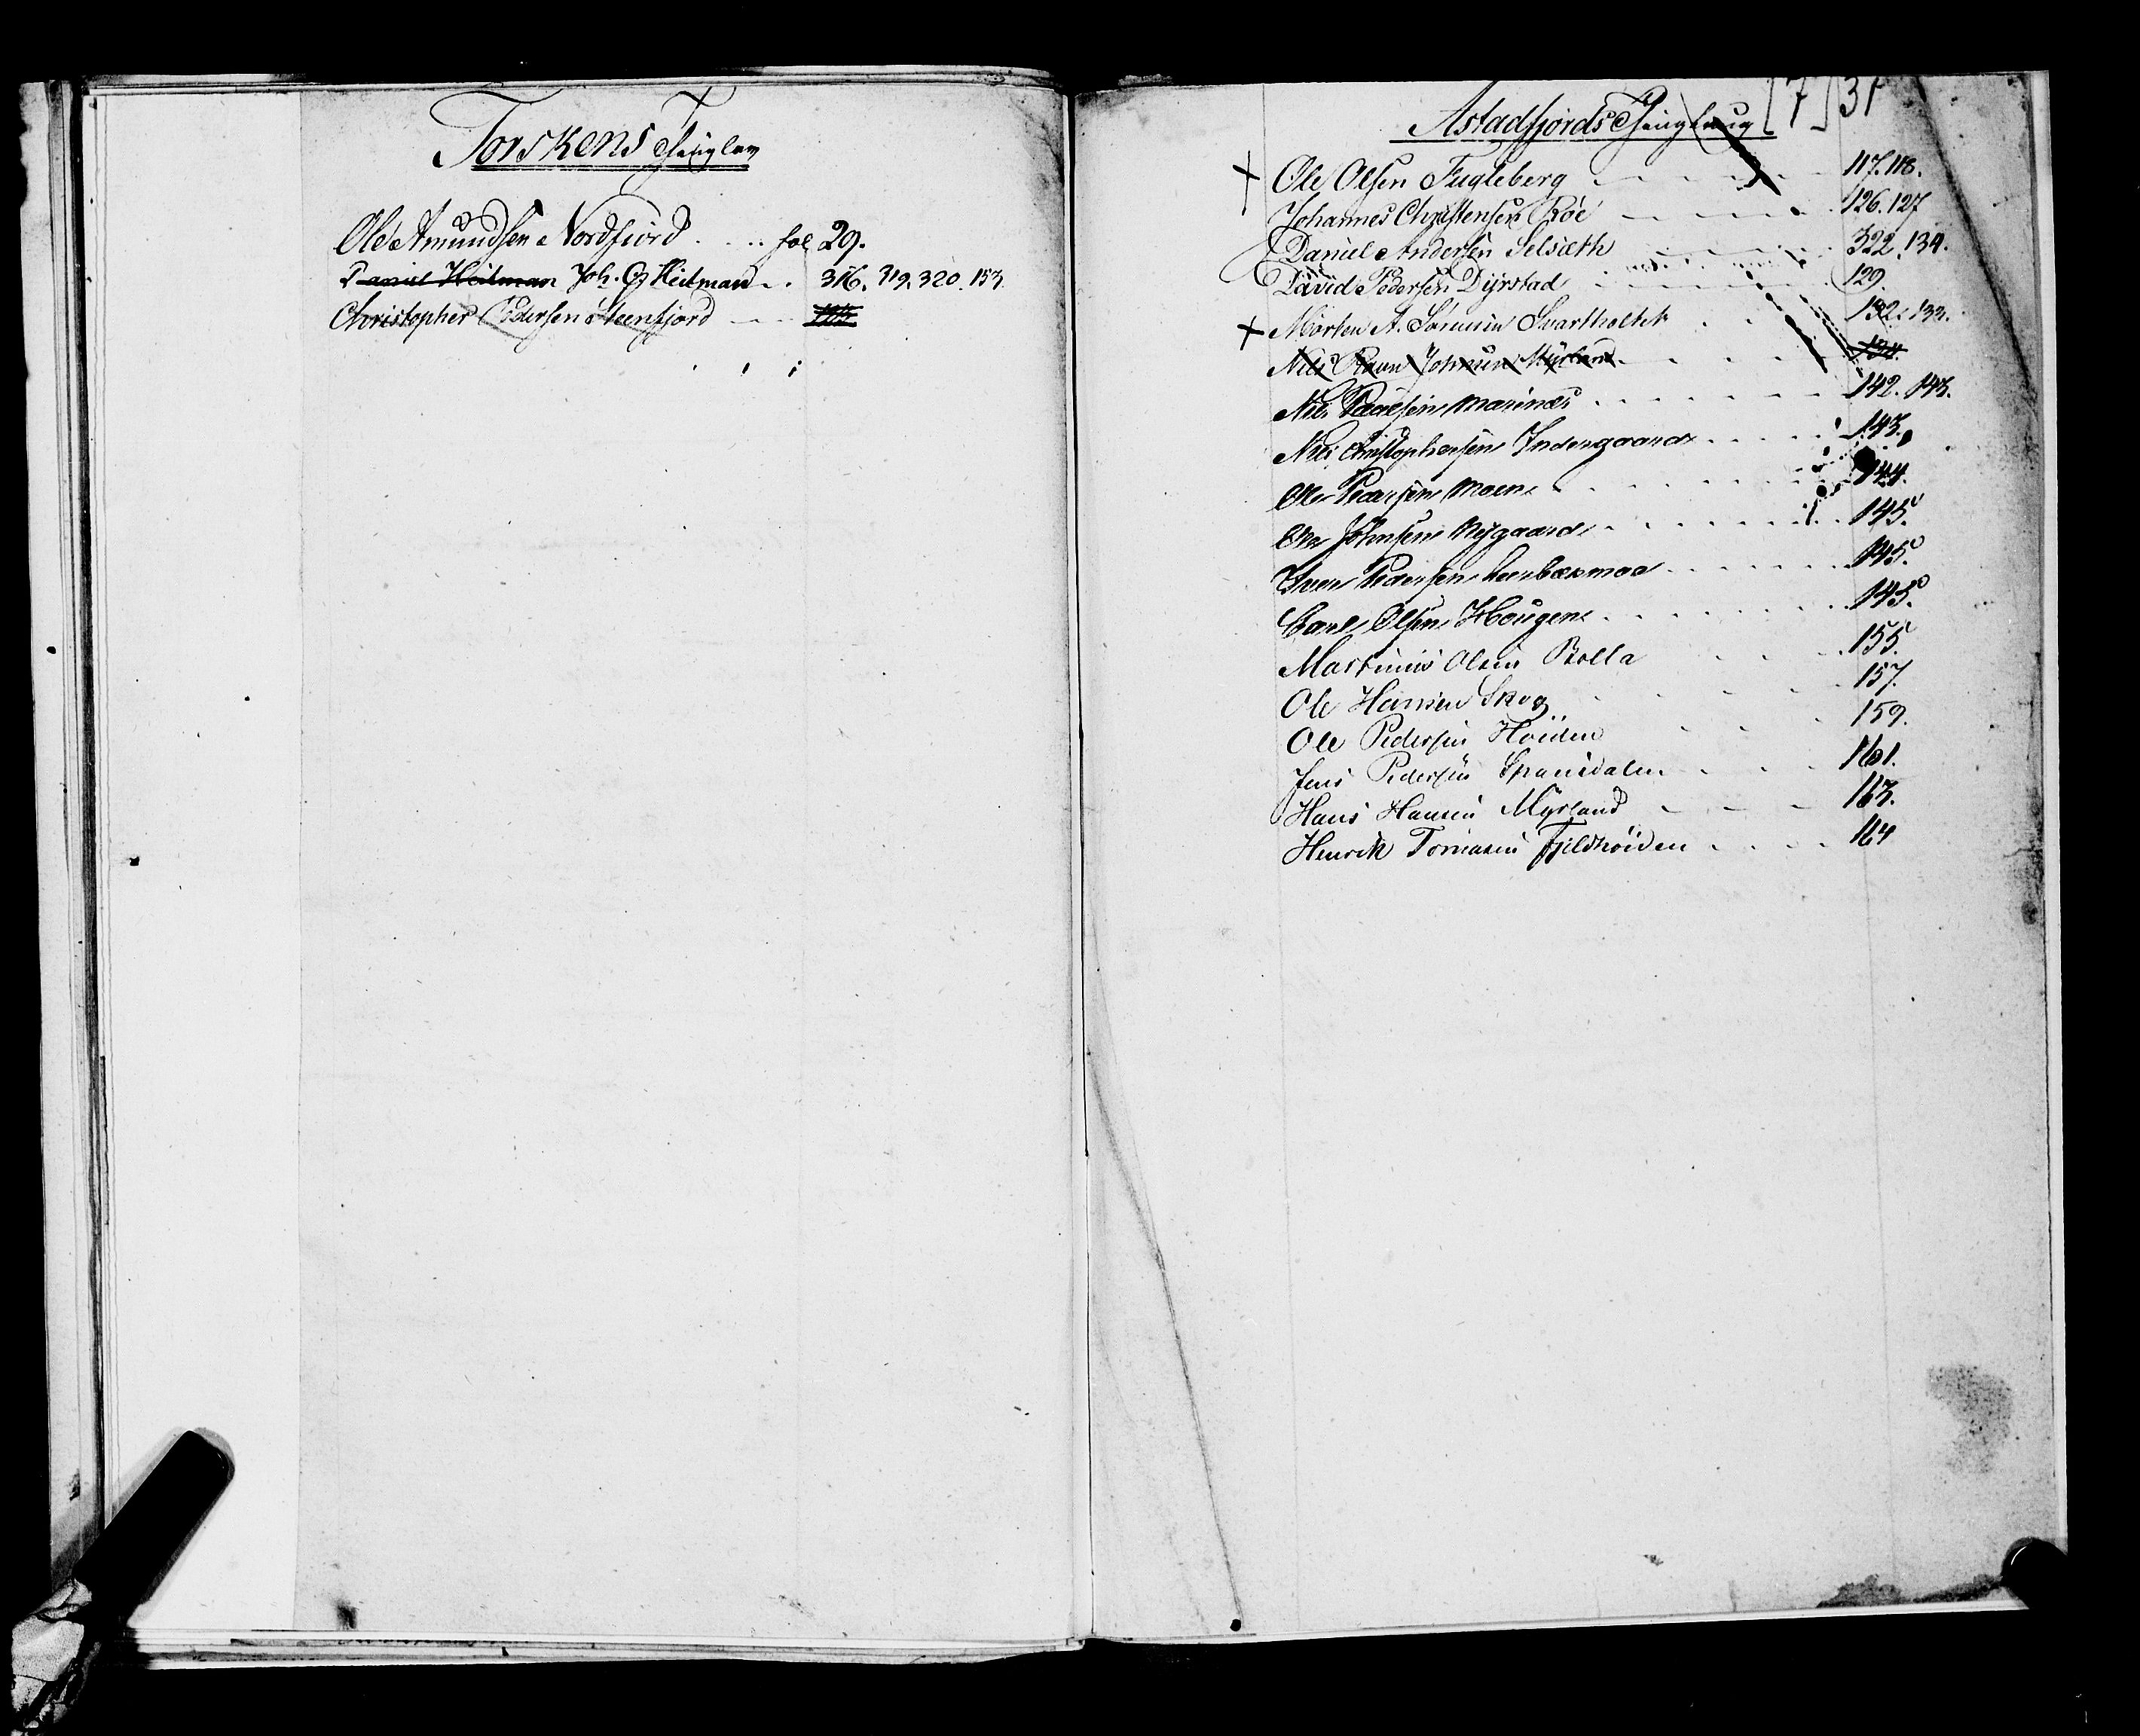 Torskens Thinglav
Ole Amundsen Nordfiord fol 29.
Daniel Heitman Joh. G. Heitman 316. 319. 320. 153.
Christopher Pedersen Steenfjord
Astadfjords Thinglaug [7] 31
Ole Olsen Fugleberg 117. 118.
Johannes Christensen Röe 126. 127
Daniel Andersen Selsæth 322. 134.
David Pedersen Dyrstad 129.
Morten A. Sørensen Svartholtet 132. 133.
Nils Johnsen Myrland 134.
Nils Paulsen Marinæs 142. 143.
Nils Christophersen Indergaard 143.
Ole Pedersen Moen 144.
Ole Johnsen Nygaard 145.
Iver Pedersen 145.
Carl Olsen Hougen 145.
Martinus Olsen Rolla 155.
Ole Hansen Skog 157.
Ole Pedersen Höiden 159.
Jens Pedersen Spansdalen 161.
Hans Hansen Myrland 163.
Henrik Tomasen Fjeldhöiden 164